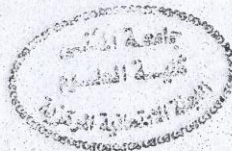 جامعة القدس
كلية العلوم
اللجنة الامتحانية المركزية